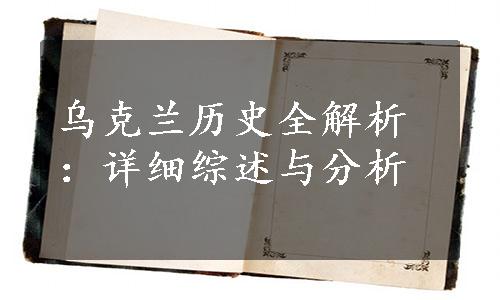 乌克兰历史全解析
：详细综述与分析